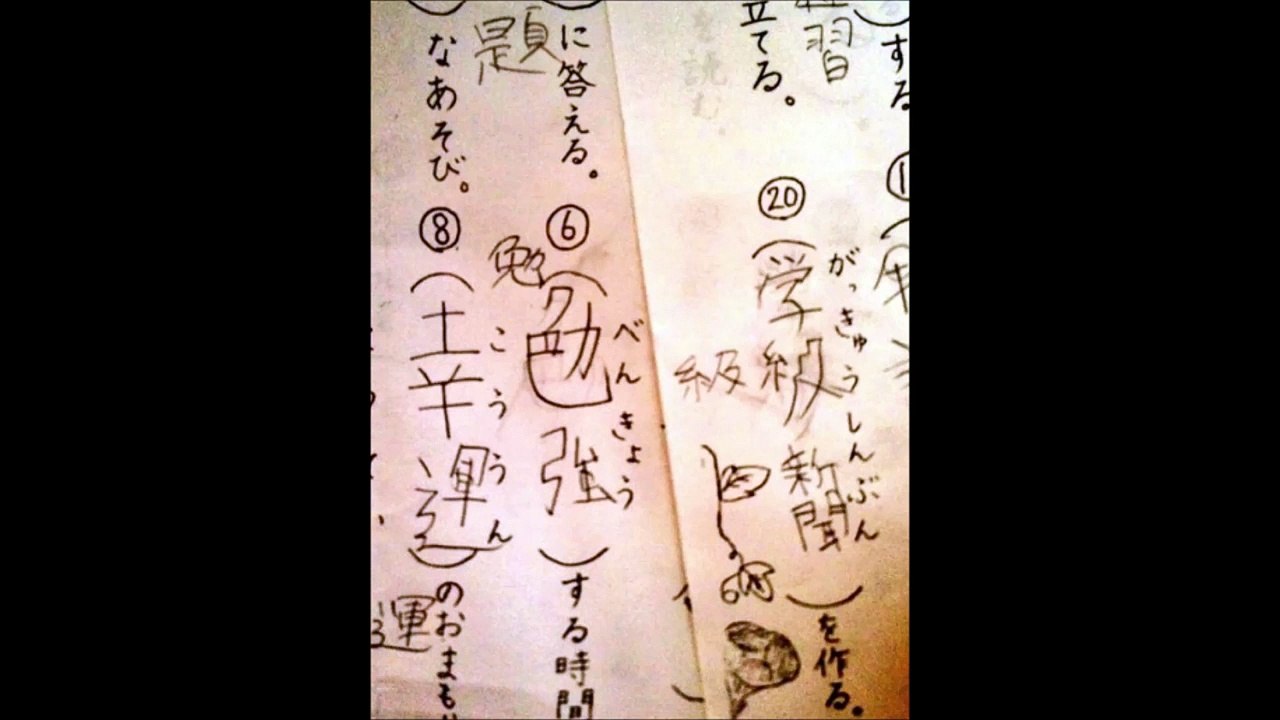 する
練習
立てる。
⑳(学級新聞)を作る。
がっきゅうしんぶん
級
を読む。
に答える。
題
⑥(勉強)する時間
べんきょう
勉
なあそび。
⑧(幸運)のおまもり
こううん
運